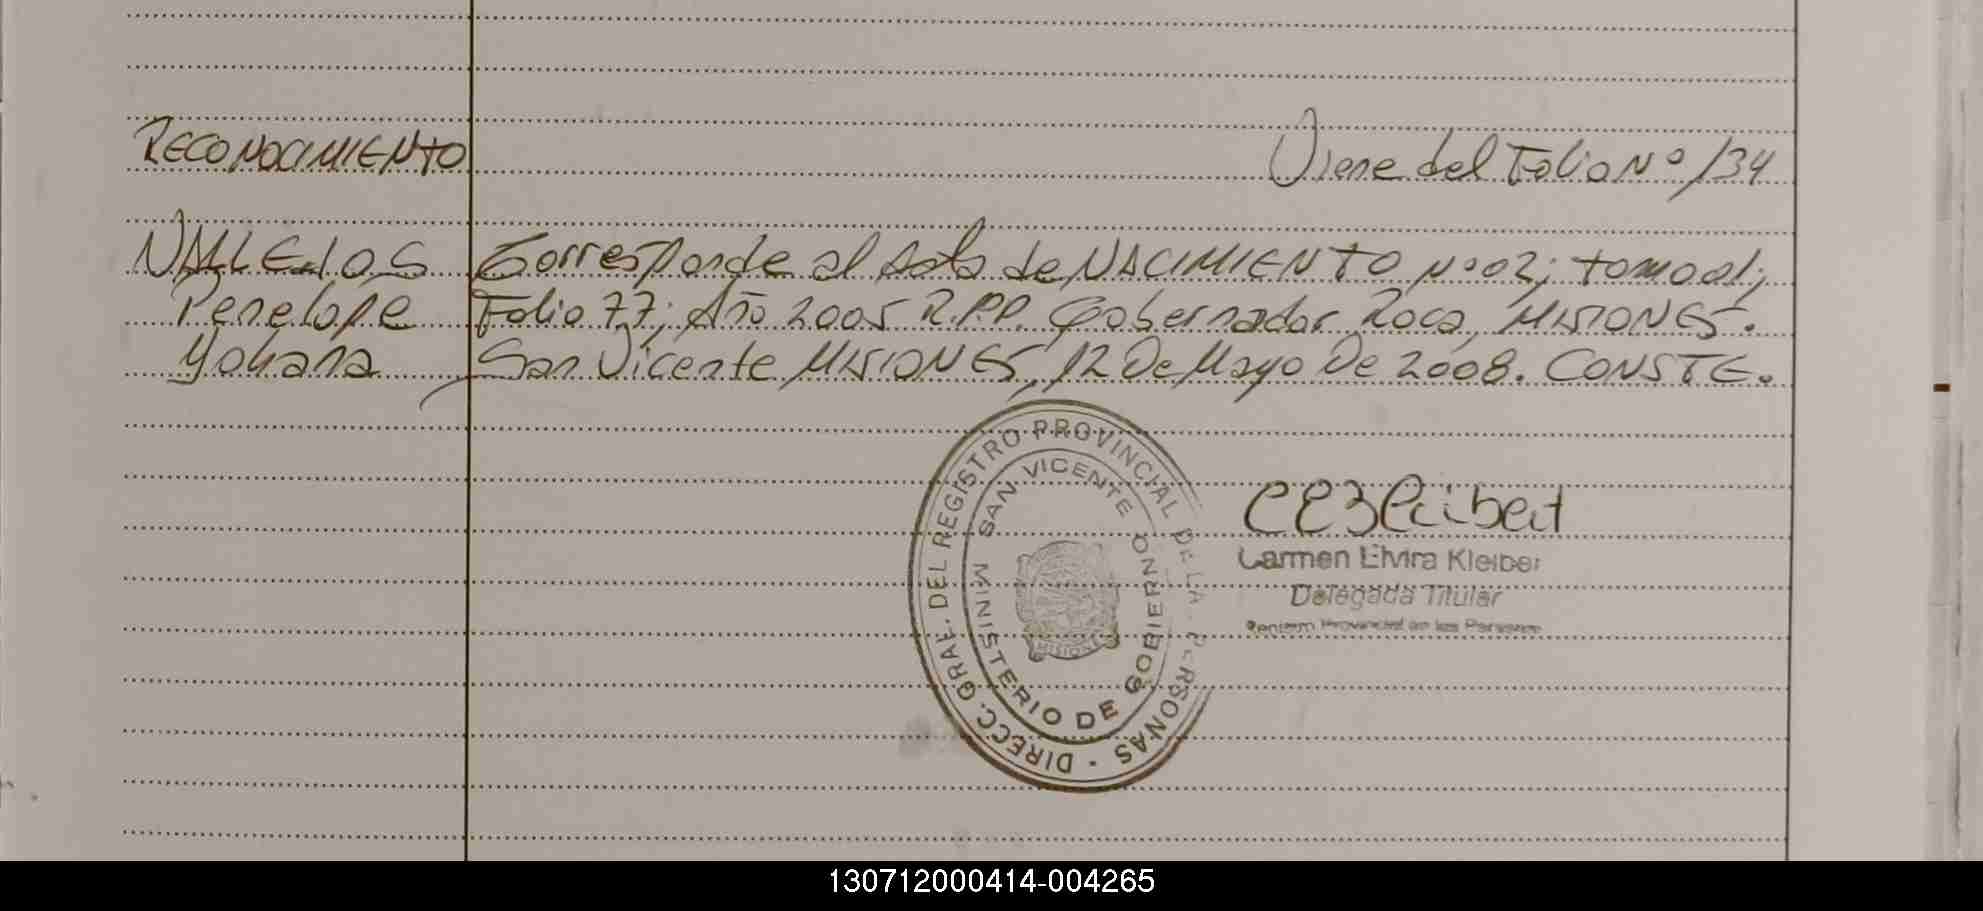 RECONOCIMIENTO
Viene del Folio Nº 134
Penelope
Yohana
Corresponde al Acta de NACIMIENTO Nº 02; tomo 01;
Folio 77; Año 2005 R.P.P. Gobernador Roca, MISIONES.
San Vicente MISIONES, 12 De Mayo De 2008. CONSTE.
DIRECC. GRAL. DEL REGISTRO PROVINCIAL DE LA. PERSONAS
SAN VICENTE
MINISTERIO DE GOBIERNO
MISIONES
Carmen Elvira Kleiber
Delegada Titular
Provincial de las Personas
130712000414-004265